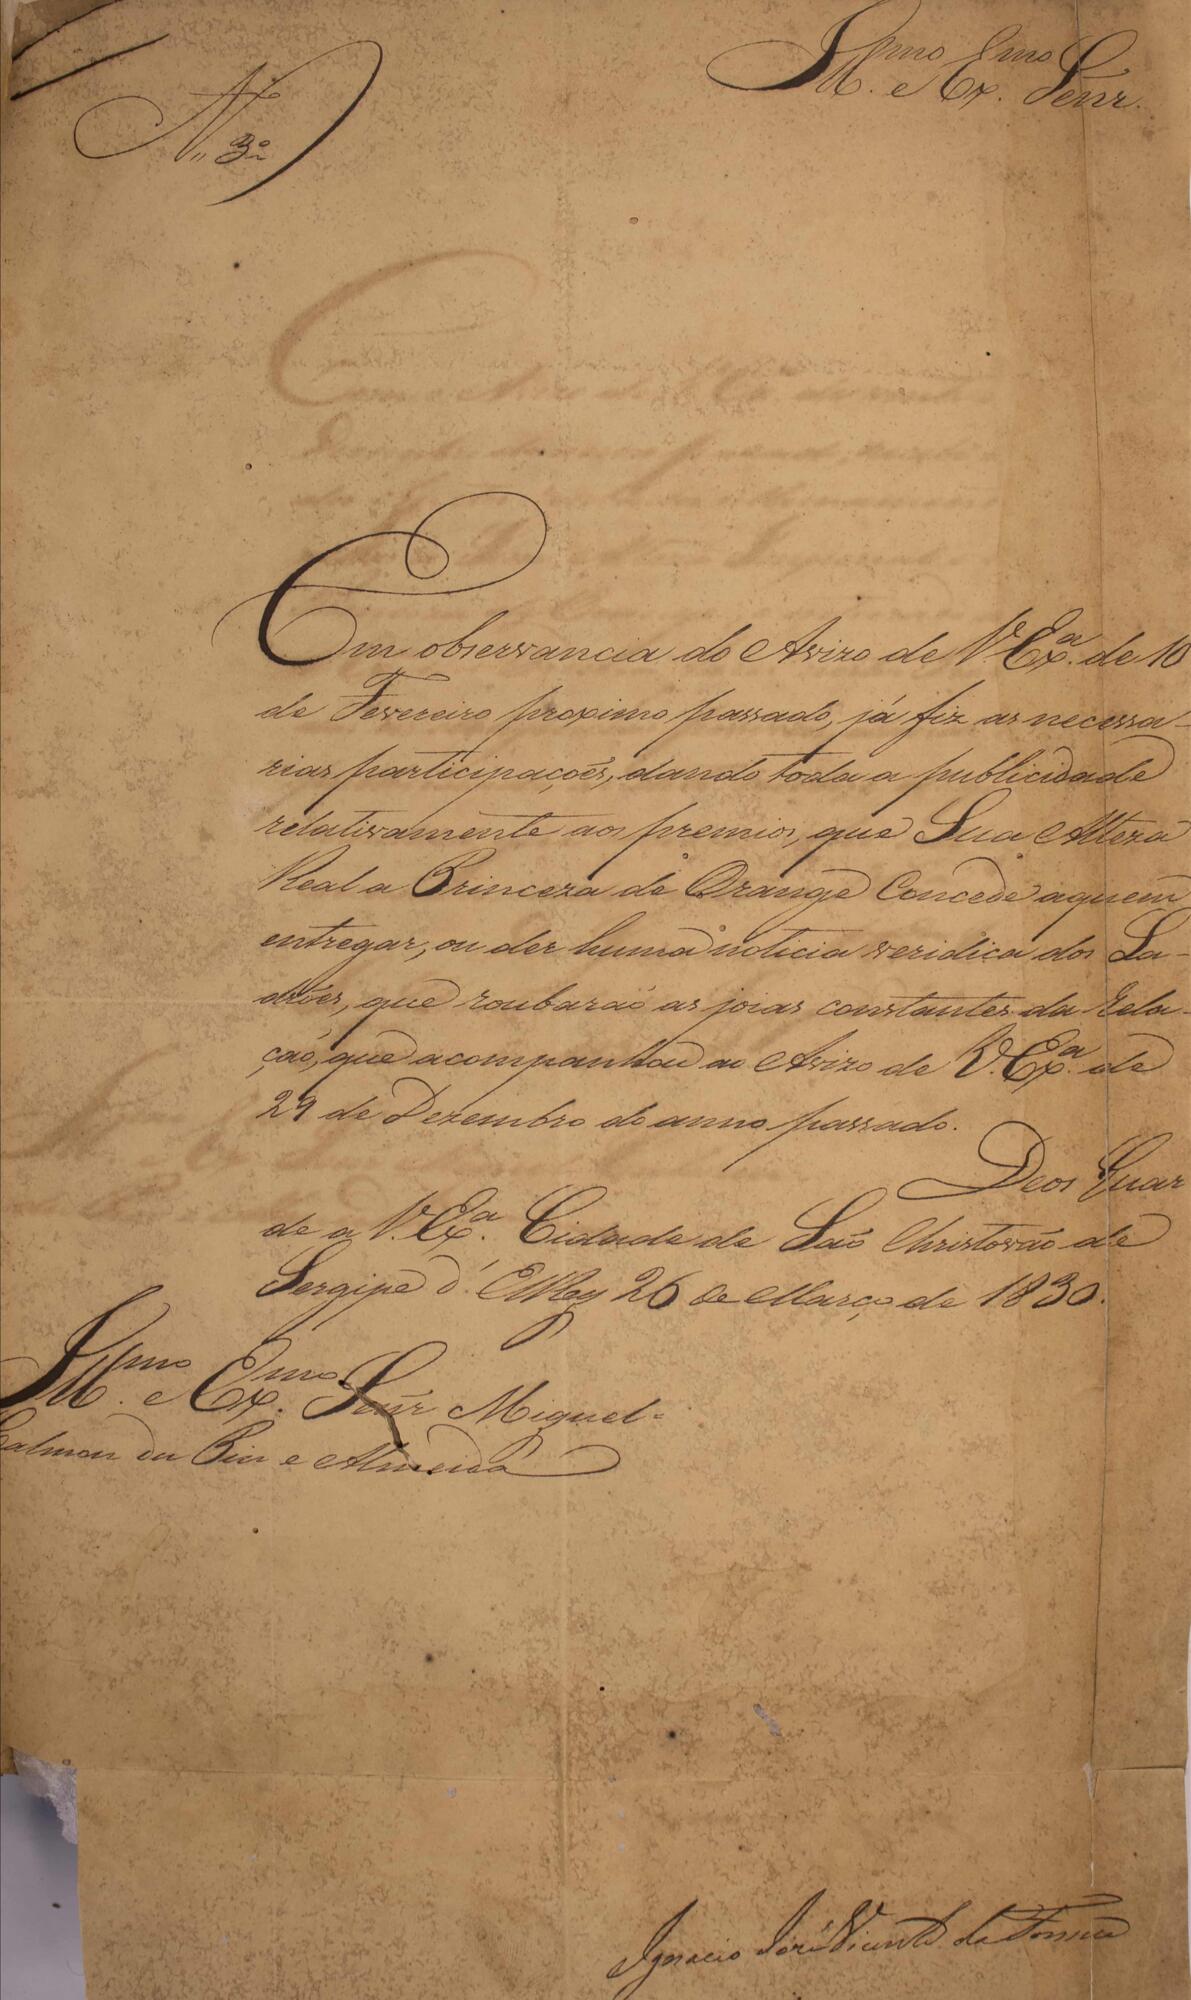 N. 3º
Ill.mo e Ex.mo Senr.
Em observancia do Avizo de V. Ex.a de 10
de Fevereiro proximo passado, já fiz as necessa-
rias participações, dando toda a publicidade
relativamente aos premios, que Sua Alteza
Real a Princeza de Orange Concede aquem
entregar, ou der huma noticia veridica dos La-
drões, que roubarão as joias constantes da Rela-
ção, que acompanhou ao Avizo de V. Ex.a de
29 de Dezembro do anno passado.
Deos Guar
de a V. Ex.a. Cidade de São Christovão de
Sergipe d'ElRey 26 de Março de 1830.
Ill.mo e Ex.mo Senr Miguel
Calmon du Pin e Almeida
Ignacio José Vicente da Fonseca